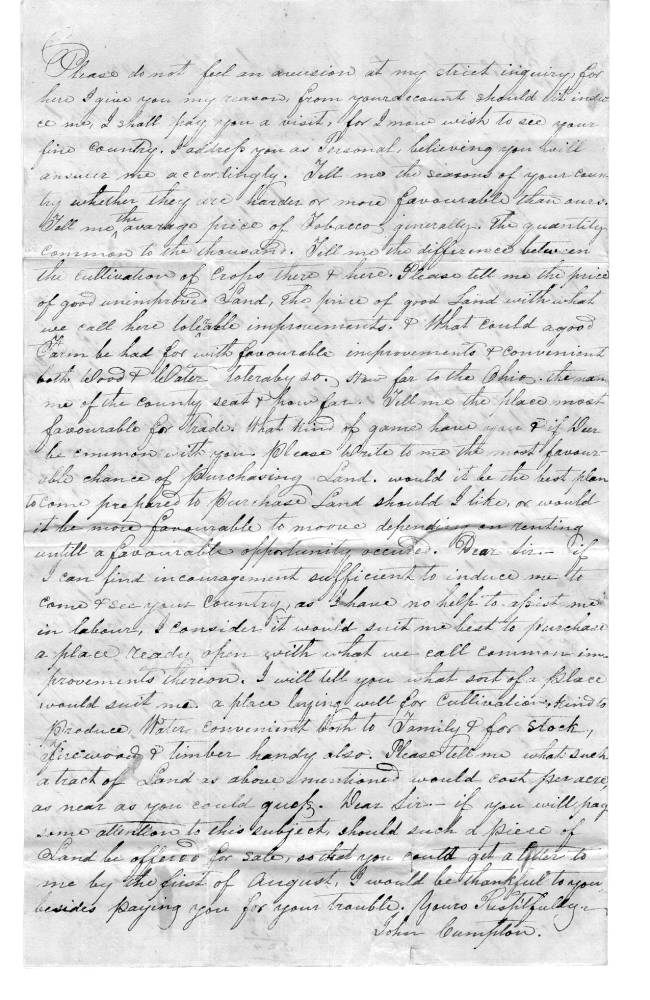 Please do not feel an avcision at my strict inquiry, for
here I give you my reason, from your account should it indu-
ce me, I shall pay you a visit, for I mow wish to see your
fine country. I address you as Personal, believing you will
answer me accordingly. Tell me the seasons of your coun-
try whether they are harder or more favourable than ours.
Tell me the avarage price of Tobacco generally. The quantity
common to the thousand. Tell me the difference between
the cultivation of Crops there & here. Please tell me the price
of good unimproved Land, The price of good Land with what
we call here tolerable improvements. & What could a good
Farm be had for with favourable improvements & convenient
both Wood & Water toleraby so. How far to the Ohio. the nam-
me of the county seat & how far. Tell me the place moost
favourable for Trade. What kind of game have you & if Deer
be common with you. Please Write to me the most favour-
able chance of Purchasing Land. would it be the best plan
to come prepared to Purchase Land should I like, or would
it be more favourable to moove depending on renting
untill a favourable opportunity occured. Dear Sir.— if
I can find incouragement sufficient to induce me to
come & see your Country, as I have no help to assist me
in labour, I consider it would suit me best to purchase
a place ready open with what we call common im-
provements thereon. I will tell you what sort of a Place
would suit me. a place laying well for Cultivation, kind to
Produce, Water convenient both to Family & for stock,
Firewood & timber handy also. Please tell me what such
a tract of Land as above mentioned would cost per acre,
as near as you could guess. Dear Sir.— if you will pay
some attention to this subject, should such a piece of
Land be offered for sale, so that you could get a letter to
me by the first of August, I would be thankful to you
besides paying you for your trouble. Yours Respltfully.
John Cumpton.